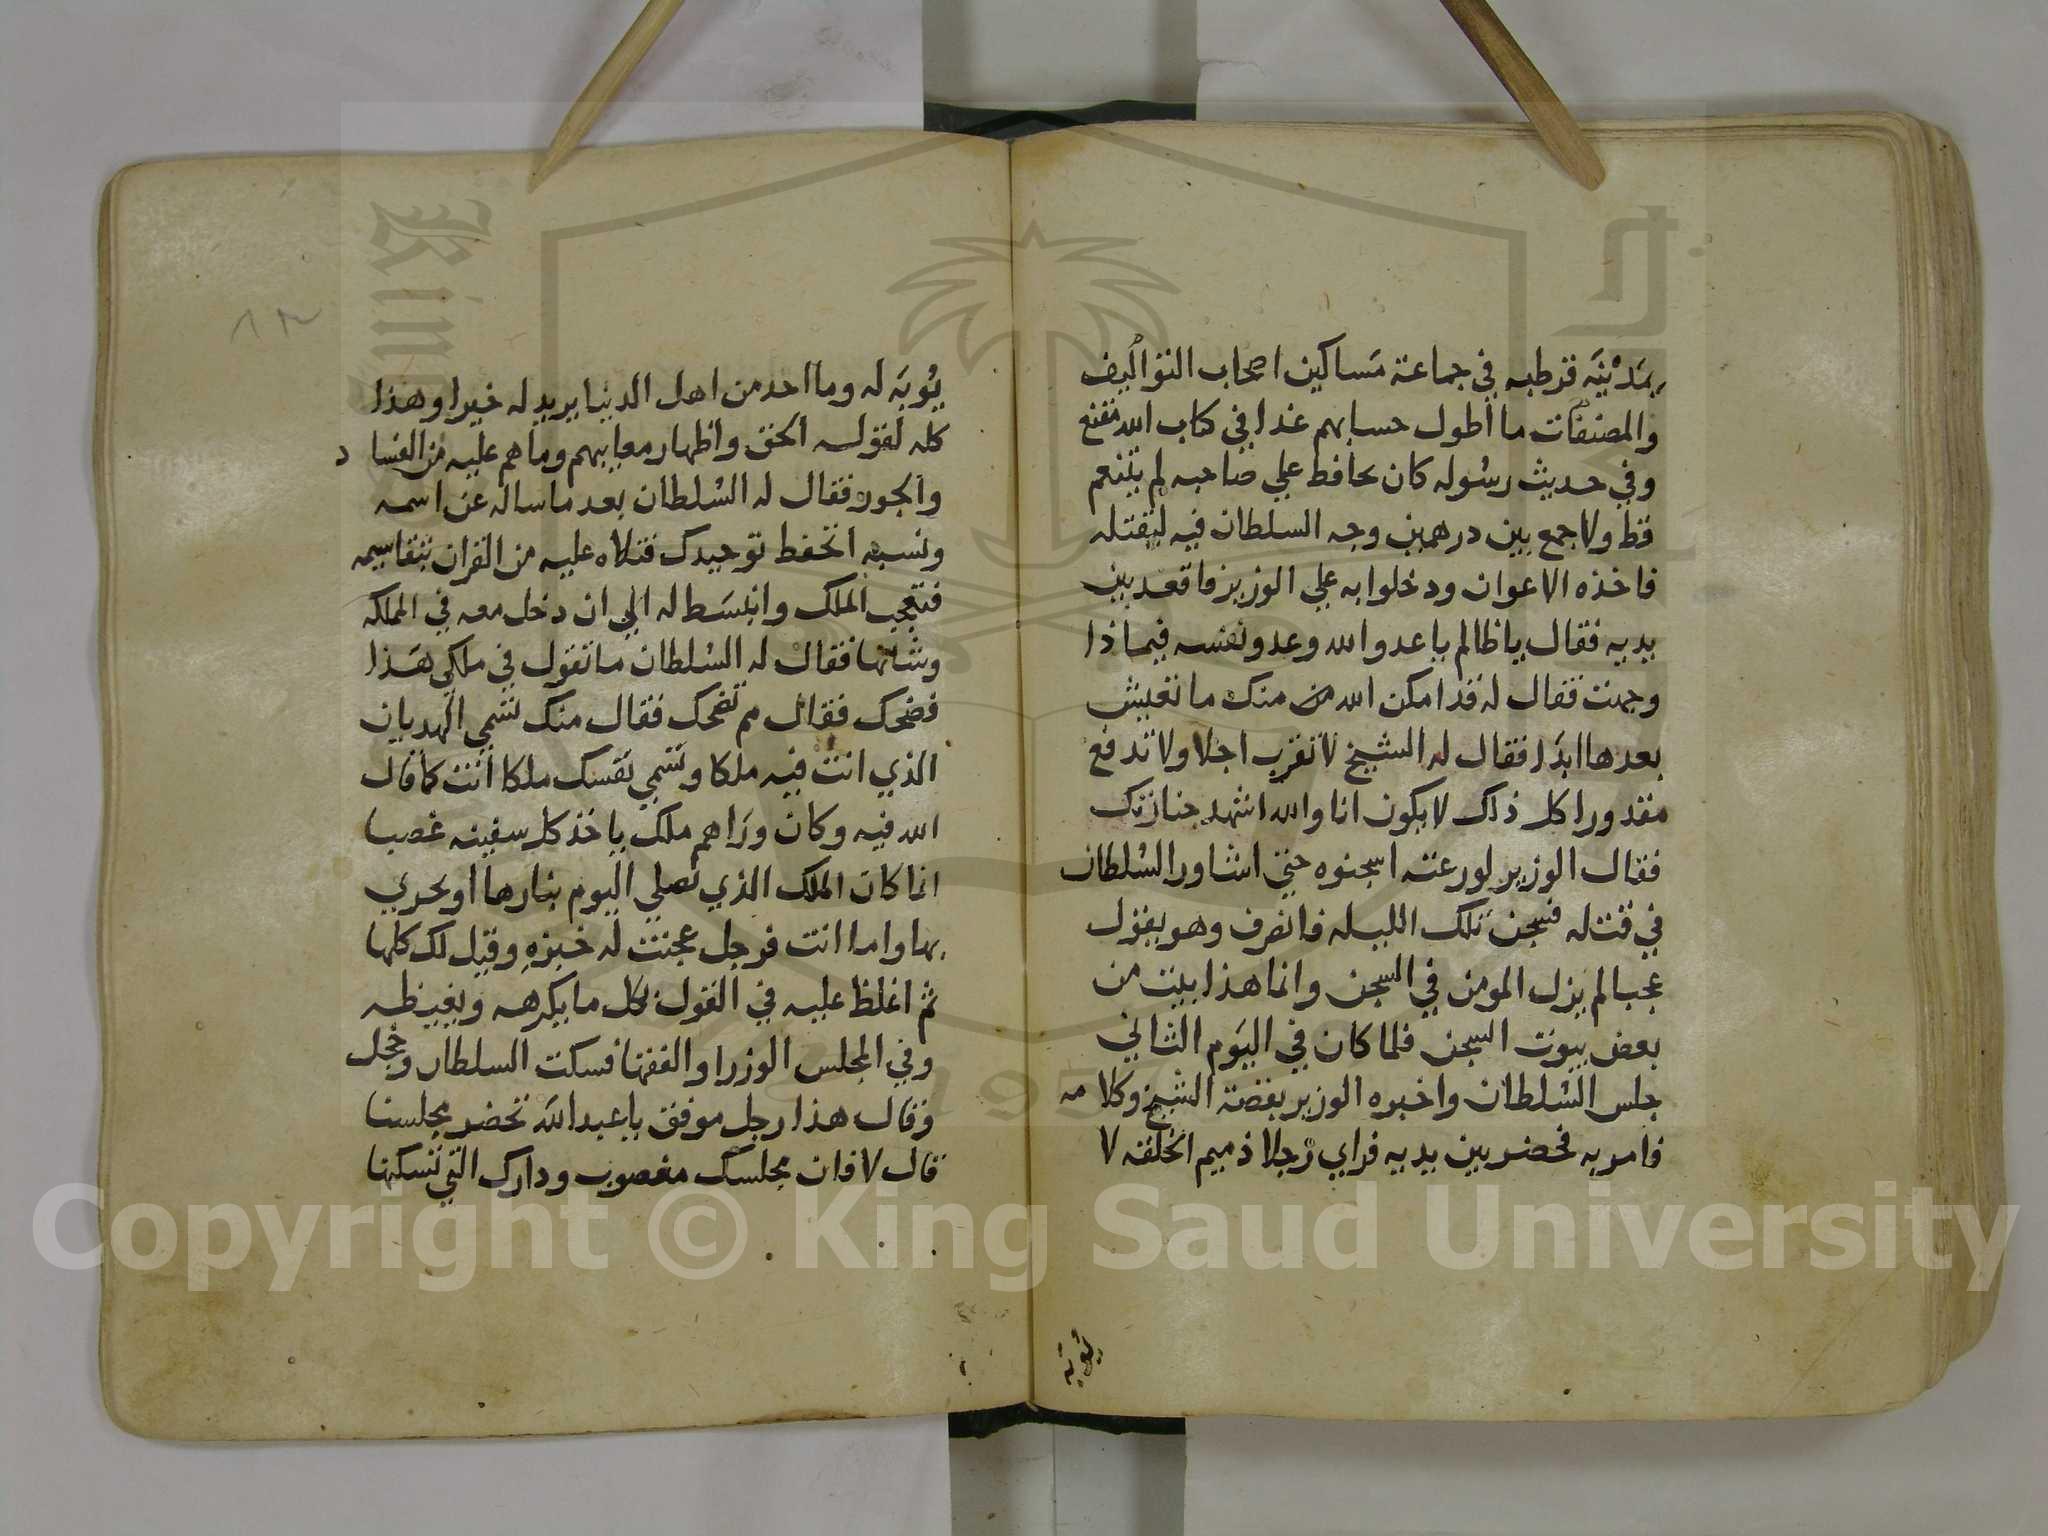 بمدينه قرطبه في جماعة مساكين اصحاب التواليف
والمصنفات ما أطول حسابهم غدا في كتاب الله مقنع
وفي حديث رسوله كان يحافط علي صاحبه لم يتنعم
قط ولا جمع بين درهمين وجه السلطان فيه ليقتله
فاخذه الاعوان ودخلوا به علي الوزير فاقعد بين
يديه فقال يا ظالم يا عدو الله وعدو نفسه فيما ذا
وجهت فقال له قد امكن الله من منك ما تعيش
بعدها ابدا فقال له الشيخ لا تقرب اجلا ولا تدفع
مقدورا كل ذلك لا يكون انا والله اشهد جنازتك
فقال الوزير لوزعته اسجنوه حتي اشاور السلطان
في قتله فسجن تلك الليله فانصرف وهو يقول
عجبا لم يزل المومن في السجن وانما هذا بيت من
بعض بيوت السجن فلما كان في اليوم الثاني
جلس السلطان واخبره الوزير بقصة الشيخ وكلامه
فامر به فحضر بين يديه فراي رجلا ذميم الخلقه لا
يوبه له
يُوبَه له وما احد من اهل الدنيا يريد له خيرا وهذا
كله لقوله الحق واظهار معايبهم وما هم عليه من الفساد
والجور فقال له السلطان بعد ما ساله عن اسمه
ونسبه اتحفط توحيدك فتلاه عليه من القران بتقاسيمه
فتعجب الملك وانبسط له الي ان دخل معه في المملكه
وشانها فقال له السلطان ما تقول في ملكي هذا
فضحك فقال مم تضحك فقال منك تسمي الهديان
الذي انت فيه ملكا وتسمي نفسك ملكا أنت كما قال
الله فيه وكان وراهم ملك ياخذ كل سفينه غصبا
انما كان الملك الذي تصلي اليوم بنارها او يجزي
بها واما انت فرجل عجنت له خبزه وقيل لك كلها
ثم اغلظ عليه في القول بكل ما يكرهه ويغيظه
وفي المجلس الوزرا والفقها فسكت السلطان وخجل
وقال هذا رجل موفق يا عبد الله تحضر مجلسنا
قال لا فان مجلسك مغصوب ودارك التي تسكنها
Copyright © King Saud University